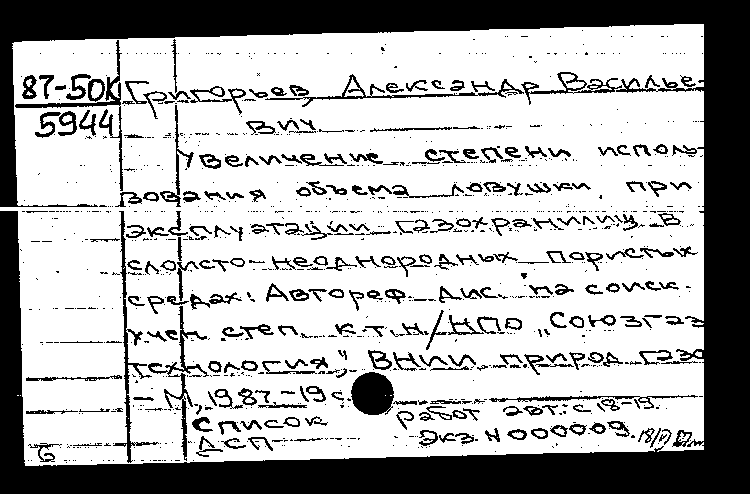 87-50К Григорьев, Александр Василье-
5944 вич
Увеличение степени исполь-
зования объема ловушки при
эксплуатации газохранилищ в
слоисто-неоднородных пористых
средах: Автореф. дис. на соиск.
учен. степ. к.т.н/НПО „Союзгаз
технология", ВНИИ природ газо
- М, 1987.-19 с
Список работ авт.: с 18-19.
ДСП Экз N 000009.
G